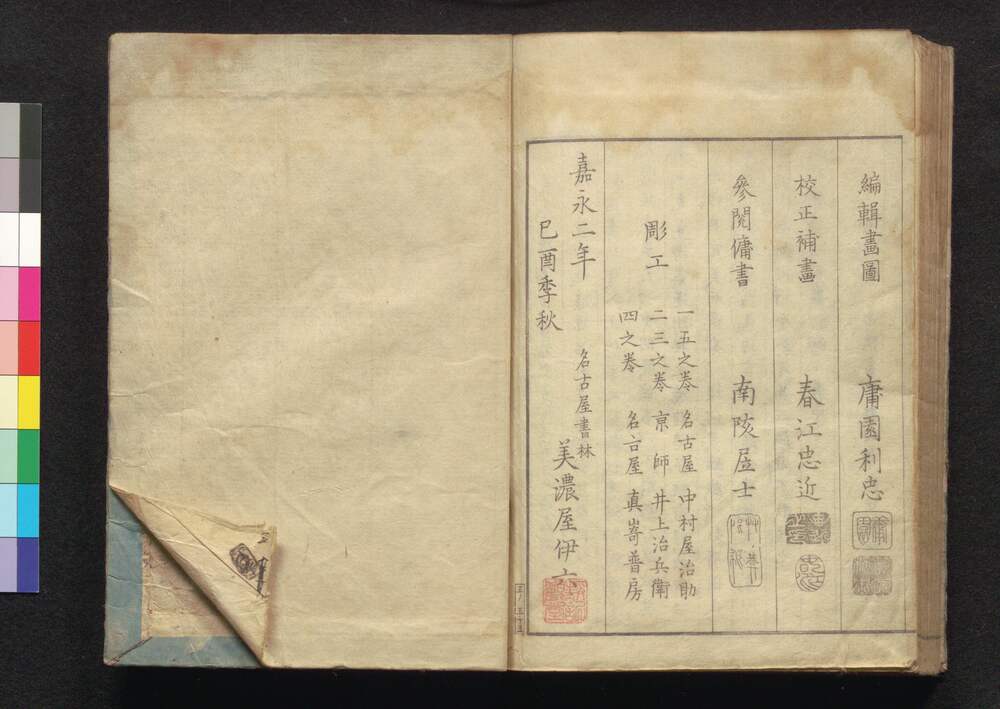 編輯畫圖 庸園利忠
校正補畫 春江忠近
參閲傭書 南陔居士
彫工
一五之巻 名古屋 中村屋治助
二三之巻 京師 井上治兵衛
四之巻 名古屋 真嵜普房
嘉永二年
己酉季秋
名古屋書林
美濃屋伊六